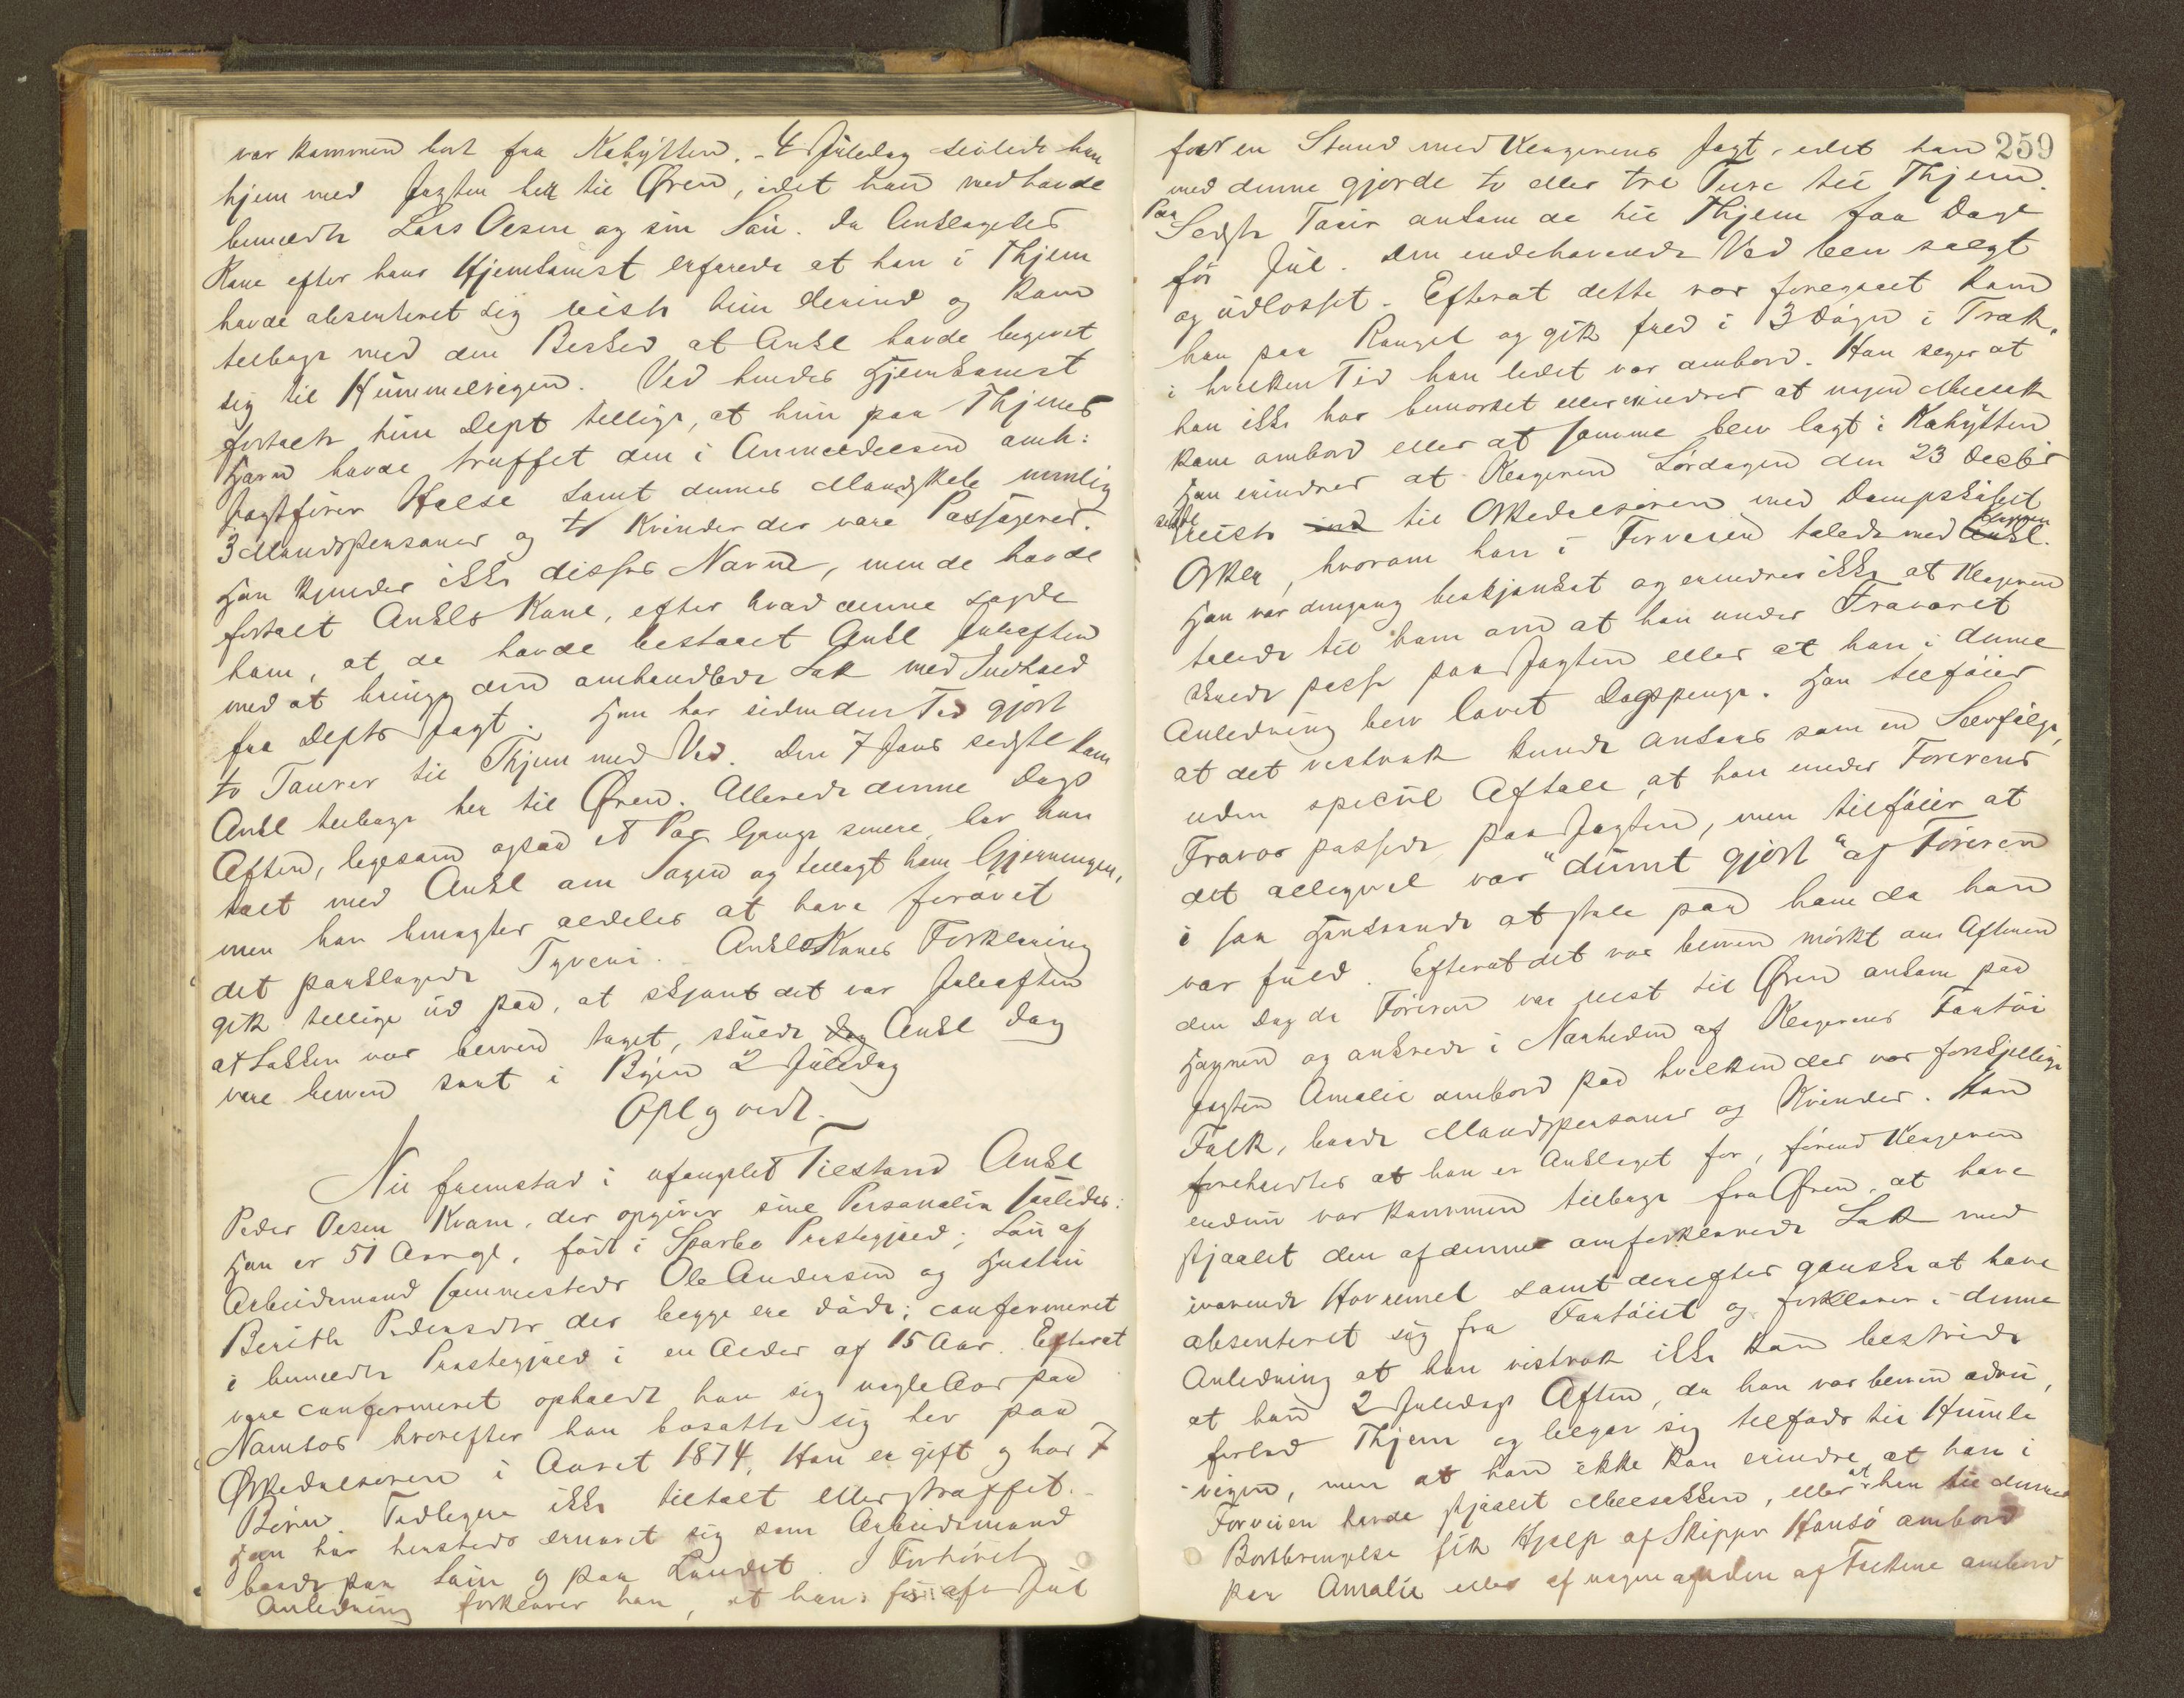 var kommen bort fra Kahytten. - 4 Juledag seilede han
hjem med Jagten her til Øren, idet han medhavde
bemeldte Lars Olsen og sin Søn. Da Anklagedes
Kone efter hans Hjemkomst erfarede at han i Thjem
havde absenteret sig reiste hun derind og kom
tilbage med den Besked at Ankl havde begivet
sig til Hummelvigen. Ved hendes Hjemkomst
fortalte hun Dept tillige, at hun paa Thjems
Havn havde truffet den i Anmeldelsen omh:
Jagtfører Halse samt dennes Mandskab nemlig
3 Mandspersoner og to Kvinder der vare Passagerer.
Han kjender ikke disses Navne, men de havde
fortalt Ankls Kone, efter hvad denne sagde
ham, at de havde bestaaet Ankl Juleaften
med at bringe den omhandlede Sæk med Indhold
fra Depts Jagt. Han har siden den Tid gjort
to Tourer til Thjem med Ved. Den 7 Janr sidstl kom
Ankl tilbage her til Øren. Allerede denne Dags
Aften, ligesom ogsaa et Par Gange senere, har han
talt med Ankl om Sagen og tillagt ham Gjerningen,
men han benægter aldeles at have forøvet
det paaklagede Tyveri. - Ankls Kones Forklaring
gik tillige ud paa, at skjønt det var Juleaften
at Sækken var bleven taget, skulde Dag Ankl dog
være bleven seet i Byen 2 Juledag
Opl g vedt.
Nu fremstod i ufænglet Tilstand Ankl
Peder Olsen Kvam, der opgiver sine Personalia saaledes:
Han er 51 Aar gl, født i Sparbo Præstegjæld; Søn af
Arbeidsmand sammesteds Ole Andersen og Hustru
Berith Pedersdtr der begge ere døde; confermeret
i bemeldte Præstegjæld i en Alder af 15 Aar. Efterat
være confermeret opholdt han sig nogle Aar paa
Namsos hvorefter han bosatte sig her paa
Ørkedalsøren i Aaret 1874. Han er gift og har 7
Børn. Tidligere ikke tiltalt eller straffet. -
Han har hersteds ernæret sig som Arbeidsmand
baade paa Søen og paa Landet. I Forhørets
Anledning forklarer han, at han før afv Jul
259
for en Stund med Klagerens Jagt, idet han
med denne gjorde to eller tre Ture til Thjem.
Paa
Sidste Tour ankom de til Thjem faa Dage
før Jul. Den indehavende Ved blev solgt
og udlosset. Efterat dette var foregaaet kom
han paa Rangel og gik fuld i 3 Døgn i Træk,
i hvilken Tid han lidet var ombord. Han siger at
han ikke har bemærket eller erindrer at nogen Melsæk
kom ombord eller at samme blev lagt i Kahytten
Han erindrer at Klageren Lørdagen den 23 Decbr
sidstl
reiste ind til Orkedalsøren med Dampskibet
denne
Orkla, hvorom han i Forveien talede med Ankl.
Han var dengang beskjænket og erindrer ikke at Klageren
talede til ham om at han under Fraværet
skulde passe paa Jagten eller at han i denne
Anledning blev lovet Dagspenge. Han tilføier
at det vistnok kunde ansees som en Selvfølge,
uden speciel Aftale, at han under Førerens
Fravær passede paa Jagten, men tilføier at
det alligevel var "dumt gjort" af Føreren
i saa Henseende at stole paa ham da han
var fuld. Efterat det var bleven mørkt om Aftenen
den Dag da Føreren var reist til Øren ankom paa
Havnen og ankrede i Nærheden af Klagerens Fartøi
Jagten Amalie ombord paa hvilken der var forskjellige
Folk, baade Mandspersoner og Kvinder. Han
foreholdtes at han er Anklaget for, førend Klageren
endnu var kommen tilbage fra Øren, at have
stjaalet den af denne omforklarede Sæk med
iværende Havremel samt derefter ganske at have
absenteret sig fra Fartøiet og forklarer i denne
Anledning at han vistnok ikke kan bestride
at han 2 Juledags Aften, da han var bleven ædru,
forlod Thjem og begav sig tilfods til Humle
vigen, men at han ikke kan erindre, at han i
at
Forveien havde stjaalet Melsækken, eller han til dennes
Bortbringelse fik Hjælp af Skipper Hansø ombord
paa Amalie eller af nogen anden af Folkene ombord